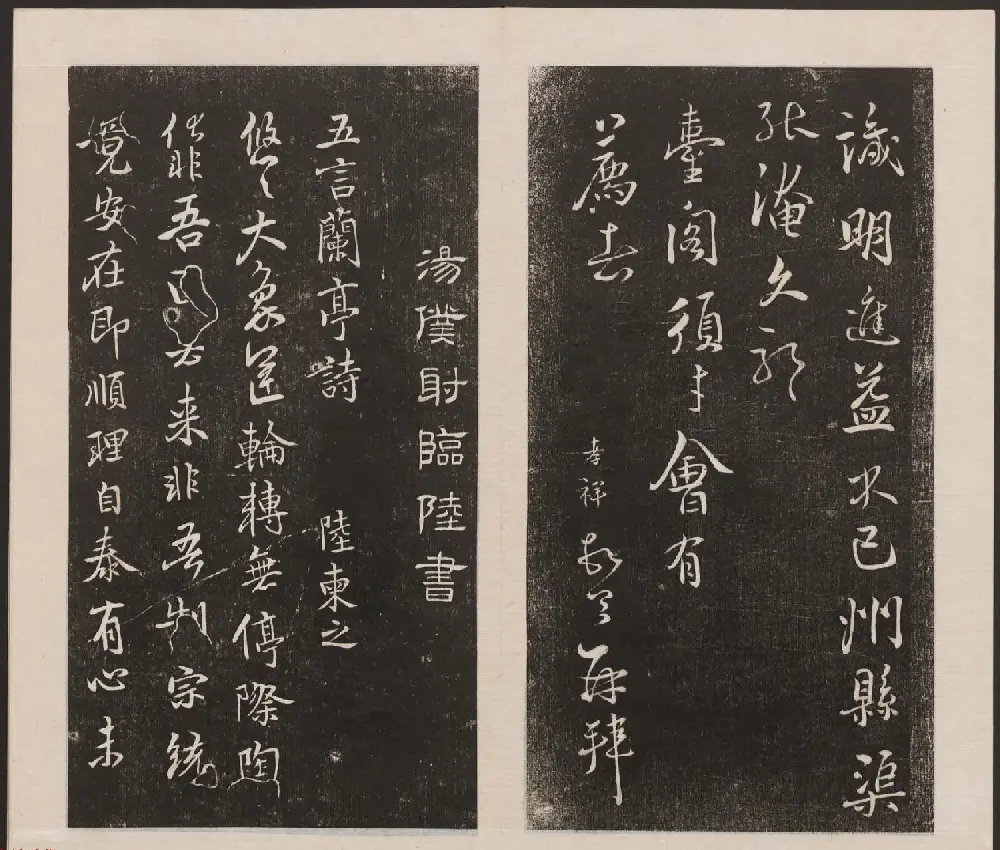 識明進益不已州縣渠
能淹久耶
臺閣須才會有
公薦者
孝祥 再拜
湯僕射臨陸書
五言蘭亭詩 陸柬之
悠〻大象運輪轉無停際陶
化非吾因去来非吾制宗統
竟安在即順理自泰有心未